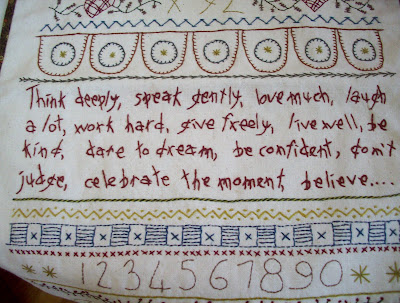 X Y Z
Think deeply, speak gently, love much, laugh
a lot, work hard, give freely, live well, be
kind, dare to dream, be confident, don't
judge, celebrate the moment, believe....
1234567890